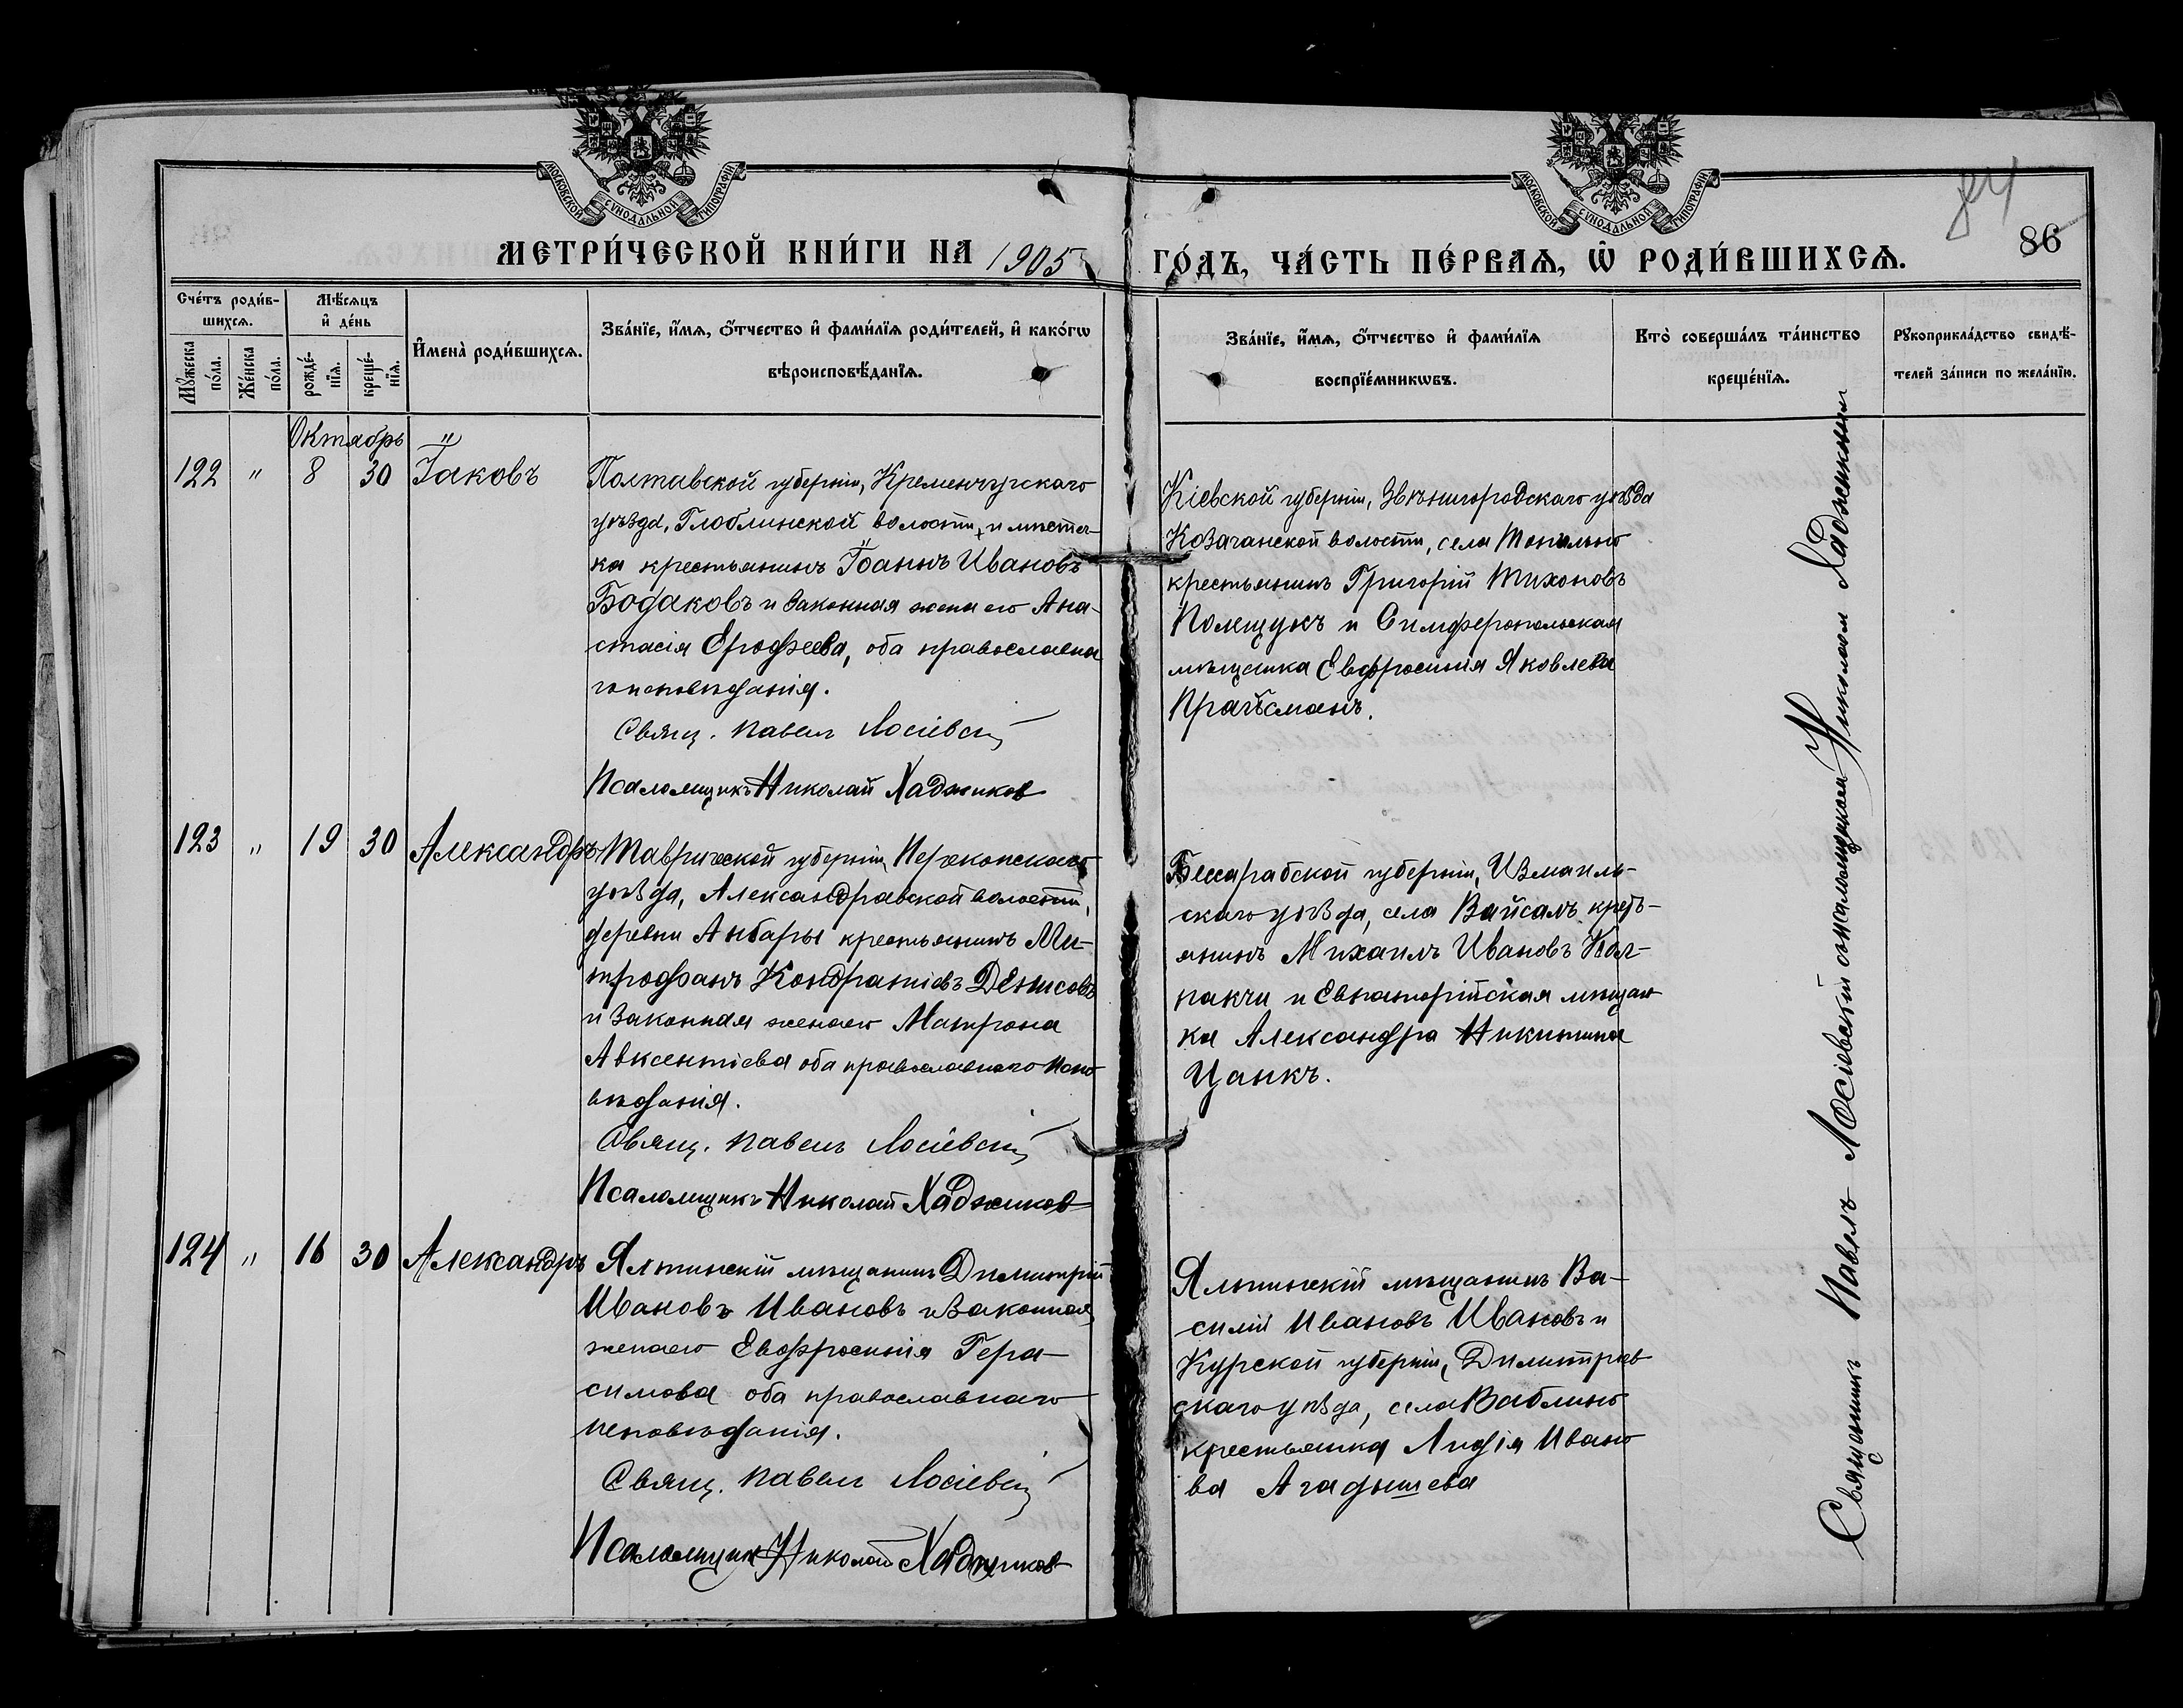 МОСКОВСКОЙ СѴНОДАЛЬНОЙ ТИПОГРАФІИ
МОСКОВСКОЙ СѴНОДАЛЬНОЙ ТИПОГРАФІИ
84
86
МЕТРИ́ЧЕСКОЙ КНИ́ГИ НА 1905
ГО́ДЪ, ЧА́СТЬ ПЕ́РВАѦ, Ѡ҆ РОДИ́ВШИХСѦ.
Сче́тъ роди́в-
шихсѧ.
Мꙋ́жеска
по́ла.
Же́нска
по́ла.
Мѣ́сяцъ
и҆ де́нь
рожде́-
нїѧ.
креще́-
нїѧ.
И҆мена̀ роди́вшихсѧ.
Зва́нїе, и҆́мѧ, ѻ҆́тчество и҆ фами́лїѧ роди́телей, и҆ како́гѡ
вѣроисповѣ́данїѧ.
Зва́нїе, и҆́мѧ, ѻ҆́тчество и҆ фами́лїѧ
воспрїе́мникѡвъ.
Кто̀ соверша́лъ та́инство
креще́нїѧ.
Рꙋкоприкла́дство свидѣ́-
телей за́писи по жела́нїю.
Октябрь
122 " 8 30 Іаковъ
Полтавской губерніи, Кременчугскаго
уѣзда, Глоблинской волости, и мѣстеч-
ка крестьянинъ Іоаннъ Ивановъ
Бодаковъ и законная жена его Ана-
стасія Ерофеева, оба православна
го исповѣданія.
Свящ. Павелъ Лосіевскій
Псаломщикъ Николай Хаджиков
Кіевской губерніи, Звѣнигородскаго уѣзда
Козачанской волости, села
крестьянинъ Григорій Тихоновъ
Полищукъ и Симферопольская
мѣщанка Евфросинія Яковлева
Прайсманъ.
123 " 19 30 Александръ
Таврической губерніи Перекопскаго
уѣзда, Александравской волости,
деревни Анбары крестьянинъ Ми-
трофанъ Кондратіевъ Денисовъ
и законная жена его Матрона
Авксентіева оба православнаго испо
вѣданія.
Свящ. Павелъ Лосіевскій
Псаломщикъ Николай Хаджиков
Бессарабской губерніи, Измаиль-
скаго уѣзда, села Вайсалъ кресть-
янинъ Михаилъ Ивановъ Кол-
пакчи и Евпаторійская мѣщан
ка Александра Никитина
Цанкъ.
124 " 16 30 Александръ
Ялтинскій мѣщанинъ Димитрій
Ивановъ Ивановъ и законная
жена его Евфросинія Гера-
симова оба православнаго
исповѣданія.
Свящ. Павелъ Лосіевскій
Псаломщикъ Николай Хаджиков
Ялтинскій мѣщанинъ Ва-
силій Ивановъ Ивановъ и
Курской губерніи, Димитрiев
скаго уѣзда, села Ваблино
крестьянка Лидія Ивано
ва Агадышева
Священникъ Павелъ Лосіевскій съ псаломщикомъ Николаем Хаджиковым